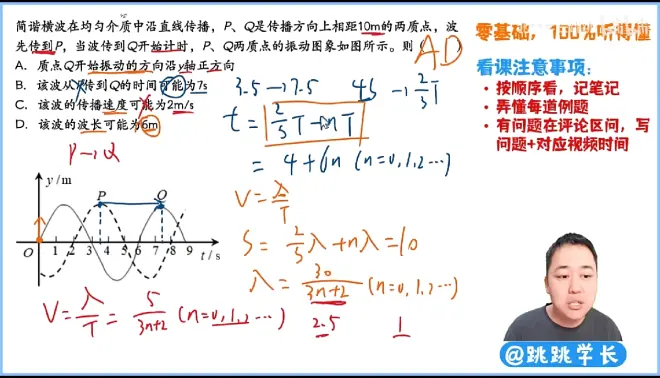 简谐横波在均匀介质中沿直线传播，P、Q是传播方向上相距10m的两质点，波
先传到P，当波传到Q开始计时，P、Q两质点的振动图象如图所示。则（ AD ）
A．质点Q开始振动的方向沿y轴正方向
B．该波从P传到Q的时间可能为7s
C．该波的传播速度可能为2m/s
D．该波的波长可能为6m
P→Q
y/m
P Q
O 1 2 3 4 5 6 7 8 9 t/s
3.5→7.5 4s → 2/3T
t = 2/3T + nT
= 4+6n (n=0,1,2…)
V = λ/T
S = 2/3λ + nλ = 10
λ = 30/(3n+2) (n=0,1,2…)
V = λ/T = 5/(3n+2) (n=0,1,2…)
2.5 1
零基础，100%听得懂
看课注意事项：
• 按顺序看，记笔记
• 弄懂每道例题
• 有问题在评论区问，写
问题+对应视频时间
@跳跳学长